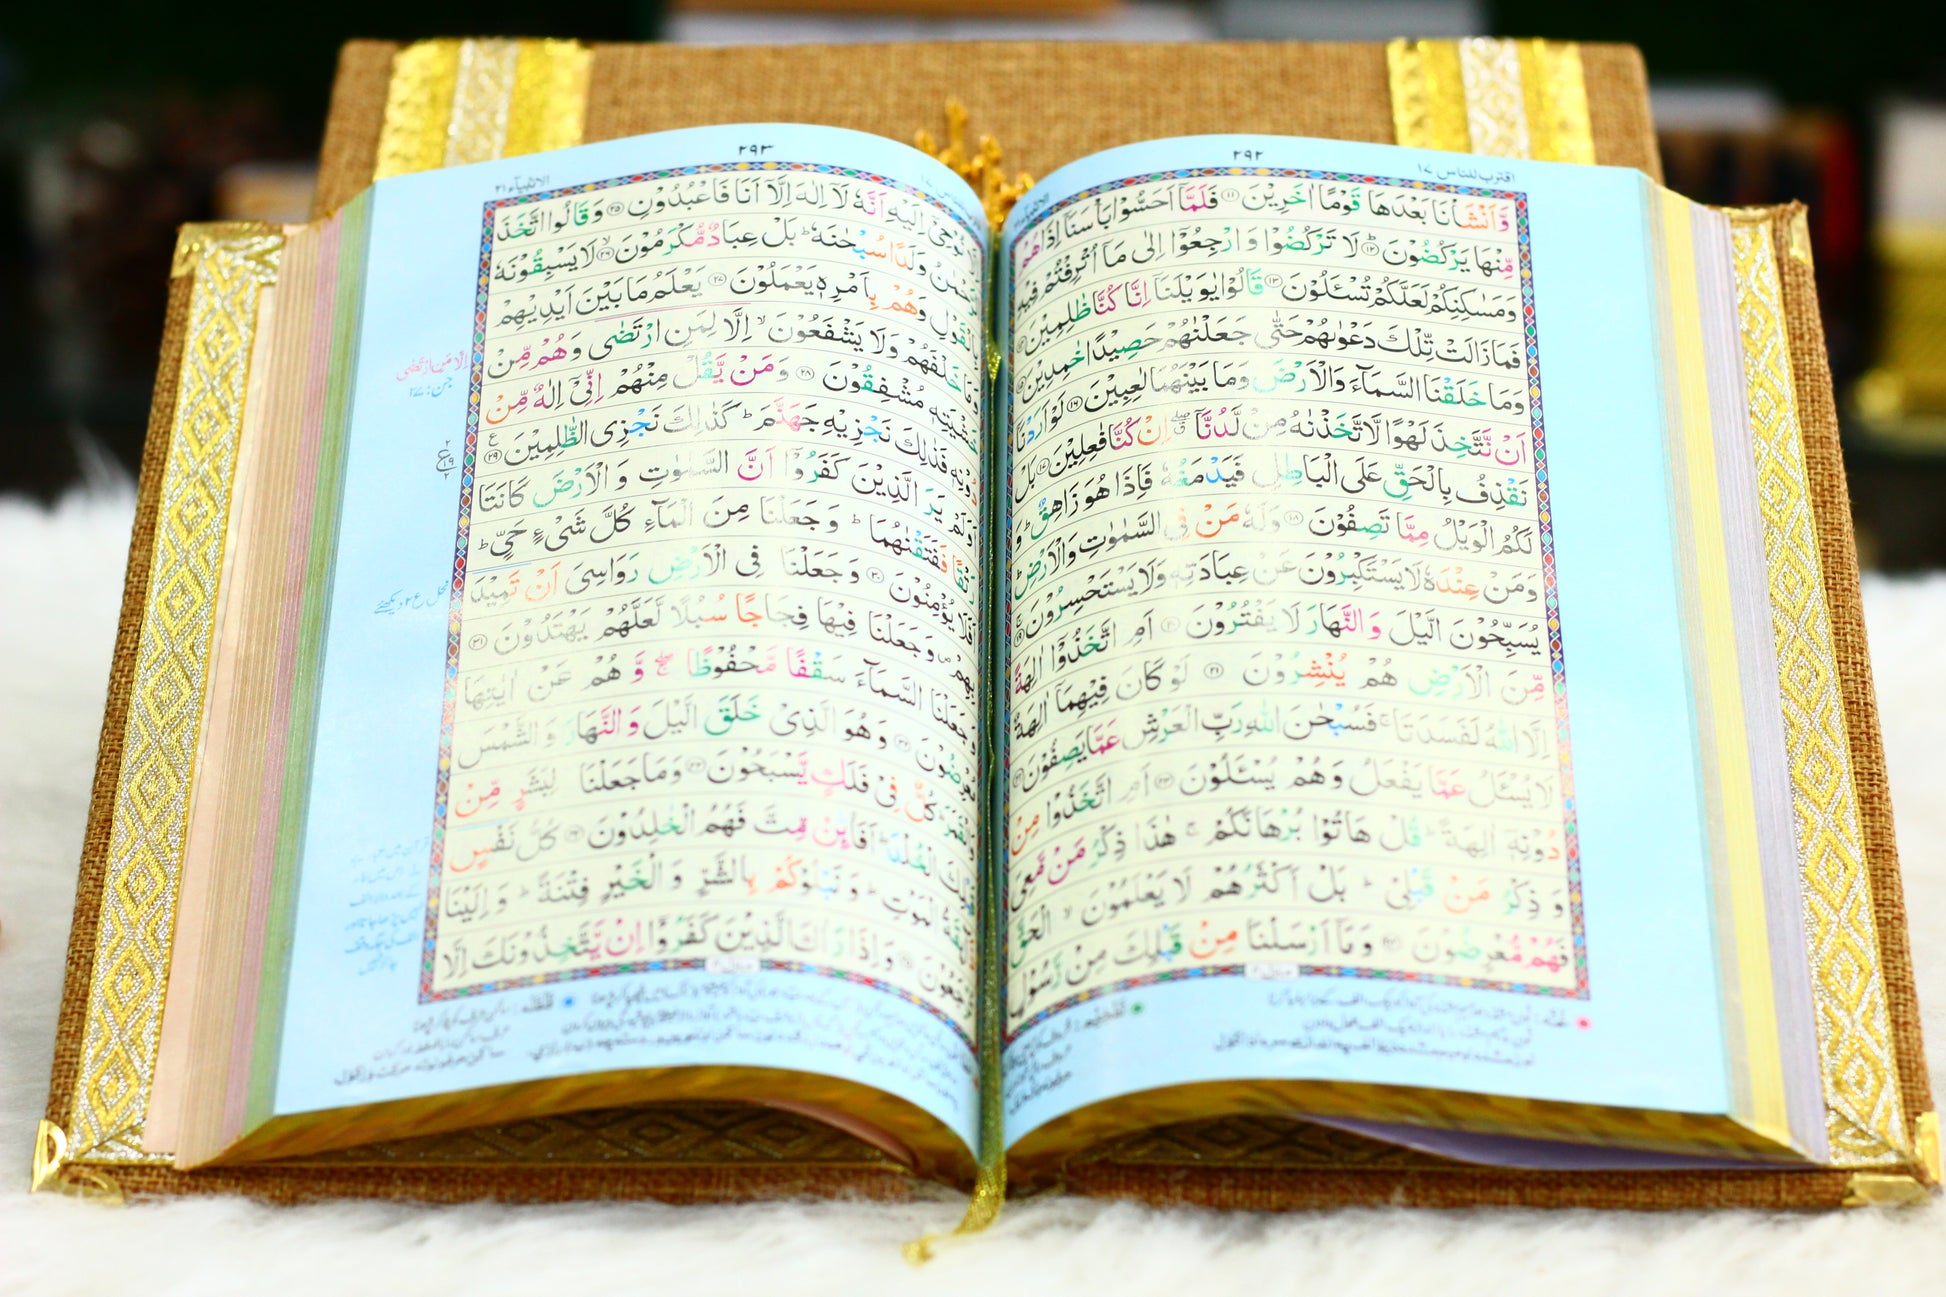 ٢٩٢
اقترب للناس ١٧
وَّاَنْشَاْنَا بَعْدَهَا قَوْمًا اٰخَرِيْنَ ۝١١ فَلَمَّاۤ اَحَسُّوْا بَاْسَنَاۤ اِذَا هُمْ
مِّنْهَا يَرْكُضُوْنَ ۝١٢ؕ لَا تَرْكُضُوْا وَارْجِعُوْۤا اِلٰى مَاۤ اُتْرِفْتُمْ فِيْهِ
وَمَسٰكِنِكُمْ لَعَلَّكُمْ تُسْـَٔلُوْنَ ۝١٣ قَالُوْا يٰوَيْلَنَاۤ اِنَّا كُنَّا ظٰلِمِيْنَ ۝١٤
فَمَا زَالَتْ تِّلْكَ دَعْوٰىهُمْ حَتّٰى جَعَلْنٰهُمْ حَصِيْدًا خٰمِدِيْنَ ۝١٥
وَمَا خَلَقْنَا السَّمَآءَ وَالْاَرْضَ وَمَا بَيْنَهُمَا لٰعِبِيْنَ ۝١٦ لَوْ اَرَدْنَاۤ
اَنْ نَّتَّخِذَ لَهْوًا لَّاتَّخَذْنٰهُ مِنْ لَّدُنَّاۤ ۖ اِنْ كُنَّا فٰعِلِيْنَ ۝١٧ بَلْ
نَقْذِفُ بِالْحَقِّ عَلَى الْبَاطِلِ فَيَدْمَغُهٗ فَاِذَا هُوَ زَاهِقٌ ؕ وَ
لَكُمُ الْوَيْلُ مِمَّا تَصِفُوْنَ ۝١٨ وَلَهٗ مَنْ فِى السَّمٰوٰتِ وَالْاَرْضِ ؕ
وَمَنْ عِنْدَهٗ لَا يَسْتَكْبِرُوْنَ عَنْ عِبَادَتِهٖ وَلَا يَسْتَحْسِرُوْنَ ۝١٩
يُسَبِّحُوْنَ الَّيْلَ وَالنَّهَارَ لَا يَفْتُرُوْنَ ۝٢٠ اَمِ اتَّخَذُوْۤا اٰلِهَةً
مِّنَ الْاَرْضِ هُمْ يُنْشِرُوْنَ ۝٢١ لَوْ كَانَ فِيْهِمَاۤ اٰلِهَةٌ
اِلَّا اللّٰهُ لَفَسَدَتَا ۚ فَسُبْحٰنَ اللّٰهِ رَبِّ الْعَرْشِ عَمَّا يَصِفُوْنَ ۝٢٢
لَا يُسْـَٔلُ عَمَّا يَفْعَلُ وَهُمْ يُسْـَٔلُوْنَ ۝٢٣ اَمِ اتَّخَذُوْا مِنْ
دُوْنِهٖۤ اٰلِهَةً ؕ قُلْ هَاتُوْا بُرْهَانَكُمْ ۚ هٰذَا ذِكْرُ مَنْ مَّعِىَ
وَ ذِكْرُ مَنْ قَبْلِىْ ؕ بَلْ اَكْثَرُهُمْ لَا يَعْلَمُوْنَ ۙ الْحَقَّ
فَهُمْ مُّعْرِضُوْنَ ۝٢٤ وَمَاۤ اَرْسَلْنَا مِنْ قَبْلِكَ مِنْ رَّسُوْلٍ
٢٩٣
الانبياء ٢١
اِلَّا نُوْحِىْۤ اِلَيْهِ اَنَّهٗ لَاۤ اِلٰهَ اِلَّاۤ اَنَا فَاعْبُدُوْنِ ۝٢٥ وَقَالُوا اتَّخَذَ
وَلَدًا سُبْحٰنَهٗ ؕ بَلْ عِبَادٌ مُّكْرَمُوْنَ ۝٢٦ۙ لَا يَسْبِقُوْنَهٗ
بِالْقَوْلِ وَهُمْ بِاَمْرِهٖ يَعْمَلُوْنَ ۝٢٧ يَعْلَمُ مَا بَيْنَ اَيْدِيْهِمْ
وَمَا خَلْفَهُمْ وَلَا يَشْفَعُوْنَ ۙ اِلَّا لِمَنِ ارْتَضٰى وَهُمْ مِّنْ
خَشْيَتِهٖ مُشْفِقُوْنَ ۝٢٨ وَمَنْ يَّقُلْ مِنْهُمْ اِنِّىْۤ اِلٰهٌ مِّنْ
دُوْنِهٖ فَذٰلِكَ نَجْزِيْهِ جَهَنَّمَ ؕ كَذٰلِكَ نَجْزِى الظّٰلِمِيْنَ ۝٢٩
اَوَلَمْ يَرَ الَّذِيْنَ كَفَرُوْۤا اَنَّ السَّمٰوٰتِ وَالْاَرْضَ كَانَتَا
رَتْقًا فَفَتَقْنٰهُمَا ؕ وَجَعَلْنَا مِنَ الْمَآءِ كُلَّ شَىْءٍ حَىٍّ ؕ
اَفَلَا يُؤْمِنُوْنَ ۝٣٠ وَجَعَلْنَا فِى الْاَرْضِ رَوَاسِىَ اَنْ تَمِيْدَ
بِهِمْ وَجَعَلْنَا فِيْهَا فِجَاجًا سُبُلًا لَّعَلَّهُمْ يَهْتَدُوْنَ ۝٣١
وَجَعَلْنَا السَّمَآءَ سَقْفًا مَّحْفُوْظًا ۖ وَّهُمْ عَنْ اٰيٰتِهَا
مُعْرِضُوْنَ ۝٣٢ وَهُوَ الَّذِىْ خَلَقَ الَّيْلَ وَالنَّهَارَ وَالشَّمْسَ
وَالْقَمَرَ ؕ كُلٌّ فِىْ فَلَكٍ يَّسْبَحُوْنَ ۝٣٣ وَمَا جَعَلْنَا لِبَشَرٍ مِّنْ
قَبْلِكَ الْخُلْدَ ؕ اَفَا۟ئِنْ مِّتَّ فَهُمُ الْخٰلِدُوْنَ ۝٣٤ كُلُّ نَفْسٍ
ذَآئِقَةُ الْمَوْتِ ؕ وَنَبْلُوْكُمْ بِالشَّرِّ وَالْخَيْرِ فِتْنَةً ؕ وَاِلَيْنَا
تُرْجَعُوْنَ ۝٣٥ وَاِذَا رَاٰكَ الَّذِيْنَ كَفَرُوْۤا اِنْ يَّتَّخِذُوْنَكَ اِلَّا
اِلَّا مَنِ ارْتَضٰى
جن: ٢٧